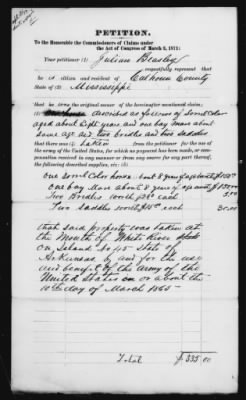 PETITION.
To the Honorable the Commissioners of Claims under
the Act of Congress of March 3, 1871:
Your petitioner Julian Beasley
respectfully represent that
he is citizen and resident of Calhoun County
State of Mississippi
that he was the original owner of the hereinafter mentioned claim;
described as follows of Sorrel Color
aged about Eight years and one bay mare about
same age and two bridles and two Saddles
that there was Taken from the petitioner for the use of
the army of the United States, for which no payment has been made, or com-
pensation received in any manner or from any source for any part thereof,
the following described supplies, etc., viz:
one Sorrel Color horse about 8 years of age worth $
one bay Mare about 8 years of age worth $
Two Bridles worth each 5.00
Two Saddles worth $15 each 30.00
that said property was taken at
the Mouth of White River
on Island No 75 State of
Arkansas by and for the use
and benefit of the army of the
United States on or about the
10th day of March 1865
Total $335.00